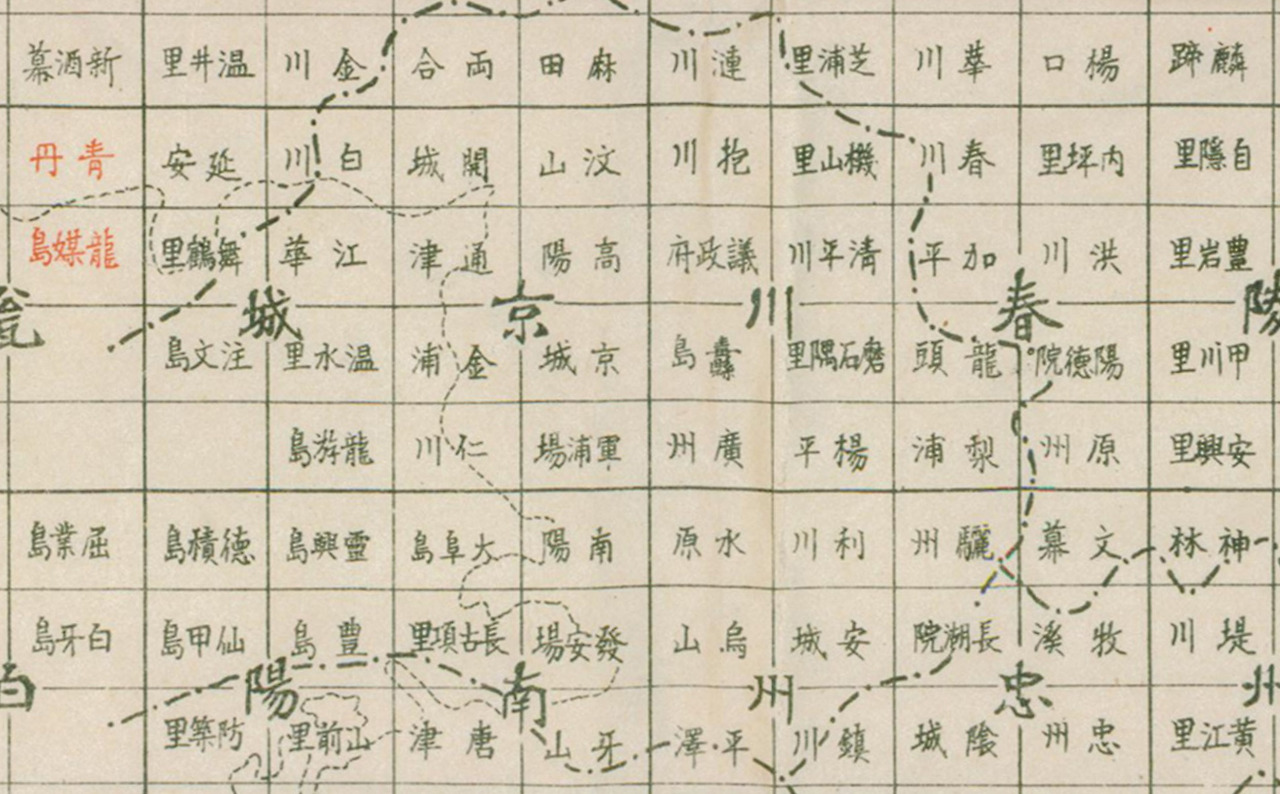 麟蹄 楊口 華川 芝浦里 漣川 麻田 両合 金川 温井里 新酒幕
自隱里 内坪里 春川 機山里 抱川 汶山 開城 白川 延安 青丹
豊岩里 洪川 加平 清平川 議政府 高陽 通津 江華 舞鶴里 龍媒島
陵 春川 京城 瓮
甲川里 陽德院 龍頭 磨石隅里 纛島 京城 金浦 温水里 注文島
安興里 原州 梨浦 楊平 廣州 軍浦場 仁川 龍游島
神林 文幕 驪州 利川 水原 南陽 大阜島 靈興島 德積島 屈業島
堤川 牧溪 長湖院 安城 烏山 發安場 長古項里 豊島 仙甲島 白牙島
州 忠州 南陽 白
黄江里 忠州 陰城 鎮川 平澤 牙山 唐津 山前里 防築里